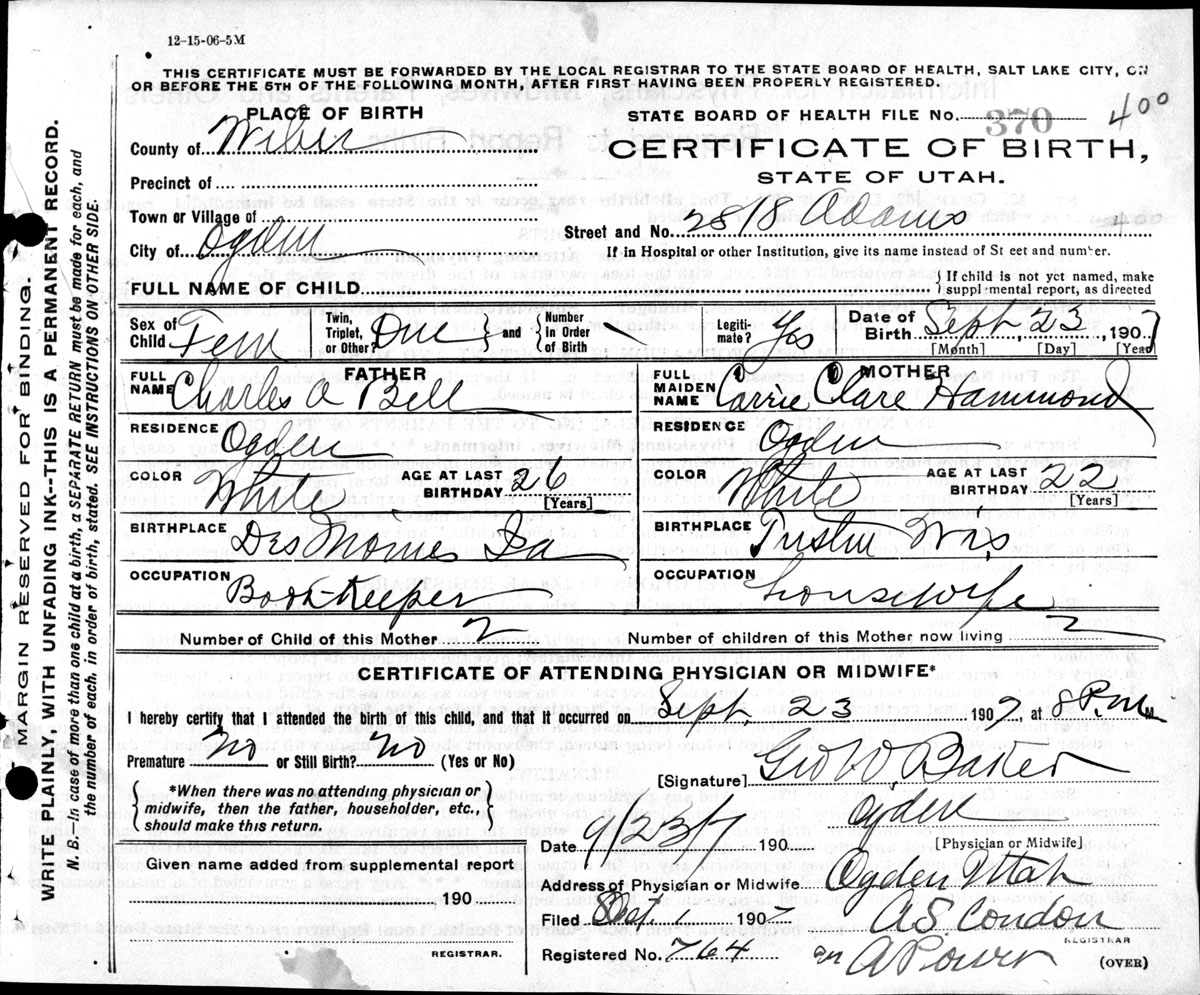 12-15-06-5M
THIS CERTIFICATE MUST BE FORWARDED BY THE LOCAL REGISTRAR TO THE STATE BOARD OF HEALTH, SALT LAKE CITY, ON
OR BEFORE THE 5TH OF THE FOLLOWING MONTH, AFTER FIRST HAVING BEEN PROPERLY REGISTERED.
PLACE OF BIRTH
STATE BOARD OF HEALTH FILE No. 370 400
County of Weber
CERTIFICATE OF BIRTH,
STATE OF UTAH.
Precinct of
Town or Village of
Street and No. 2818 Adams
City of Ogden
If in Hospital or other Institution, give its name instead of St eet and number.
FULL NAME OF CHILD
If child is not yet named, make
suppl mental report, as directed
Sex of Child Fem Twin, Triplet, or Other? One and Number in Order of Birth Legiti-mate? Yes Date of Birth Sept 23 1907
[Month] [Day] [Year]
FATHER MOTHER
FULL NAME Charles A Bell FULL MAIDEN NAME Carrie Clare Hammond
RESIDENCE Ogden RESIDENCE Ogden
COLOR White AGE AT LAST BIRTHDAY 26 [Years] COLOR White AGE AT LAST BIRTHDAY 22 [Years]
BIRTHPLACE Des Moines Ia BIRTHPLACE Tustin Wis
OCCUPATION Book-Keeper OCCUPATION Housewife
Number of Child of this Mother 2 Number of children of this Mother now living 2
CERTIFICATE OF ATTENDING PHYSICIAN OR MIDWIFE*
I hereby certify that I attended the birth of this child, and that it occurred on Sept 23 1907, at 8 P.M. M
Premature No or Still Birth? No (Yes or No)
[Signature] Geo W Baker
*When there was no attending physician or
midwife, then the father, householder, etc.,
should make this return.
Ogden
Date 9/23/7 190 [Physician or Midwife]
Given name added from supplemental report
Address of Physician or Midwife Ogden Utah
190
Filed Oct 1 1907 A S Condon
REGISTRAR
REGISTRAR.
Registered No. 764
(OVER)
MARGIN RESERVED FOR BINDING.
WRITE PLAINLY, WITH UNFADING INK--THIS IS A PERMANENT RECORD.
N. B.-In case of more than one child at a birth, a SEPARATE RETURN must be made for each, and
the number of each. in order of birth, stated. SEE INSTRUCTIONS ON OTHER SIDE.